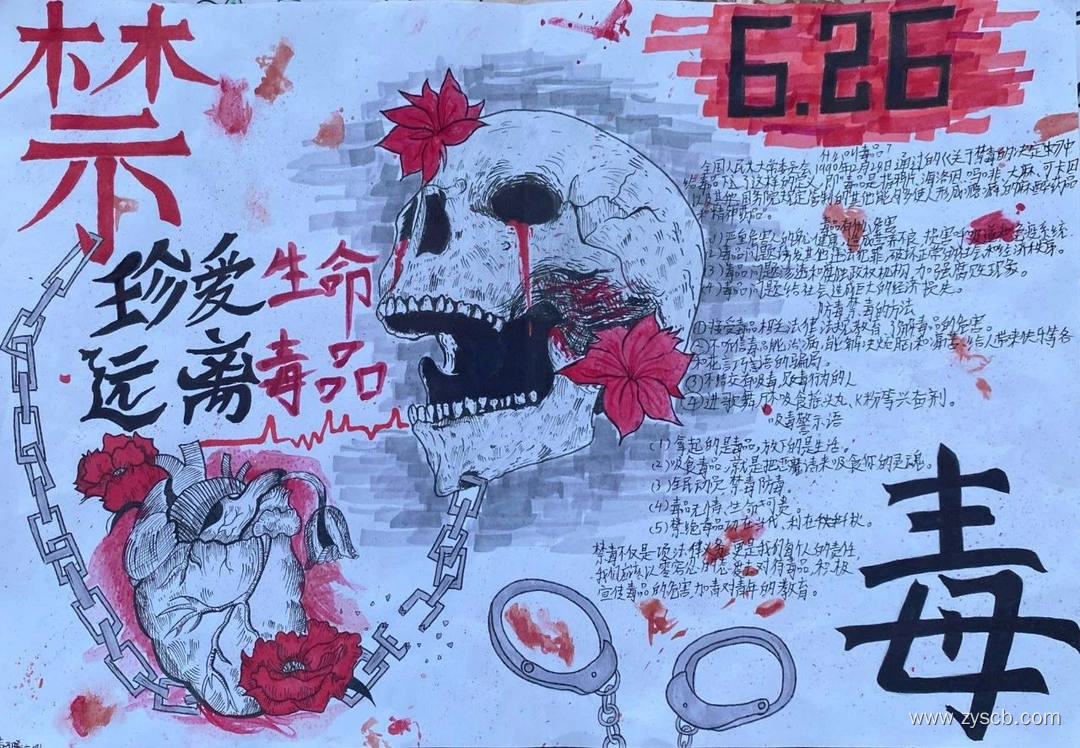 禁
6.26
珍爱生命
远离毒品
什么叫毒品？
全国人民大会常委会1990年12月28日通过的《关于禁毒的决定》中
给毒品下了这样的定义，即：毒品是指鸦片、海洛因、吗啡、大麻、可卡因
以及其他能够使人形成瘾癖的麻醉药品
和精神药品。
毒品有什么危害
(2) 毒品问题诱发其他违法犯罪，破坏正常的社会和经济秩序。
(3) 毒品问题渗透和腐蚀政权机构，加强腐败现象。
(4) 毒品问题给社会造成巨大的经济损失。
防毒禁毒的方法
①接受毒品相关法律法规教育，了解毒品的危害。
②不听信毒品能治病，能解决烦恼和痛苦，给人带来快乐等各
种花言巧语的骗局。
③不结交有吸毒、贩毒行为的人
④进歌舞厅不吸食摇头丸、K粉等兴奋剂。
吸毒警示语
(1) 拿起的是毒品，放下的是生活。
(2) 吸食毒品，就是把恶魔请来吸食你的灵魂。
(3) 全民动员 禁毒防毒
(4) 毒品无情，生命可贵。
(5) 禁绝毒品功在当代、利在千秋。
禁毒不仅是一项法律义务，更是我们每个人的责任，
我们应该以零容忍的态度去对待毒品，积极
宣传毒品的危害，加毒对青年的教育。
毒
www.zyscb.com